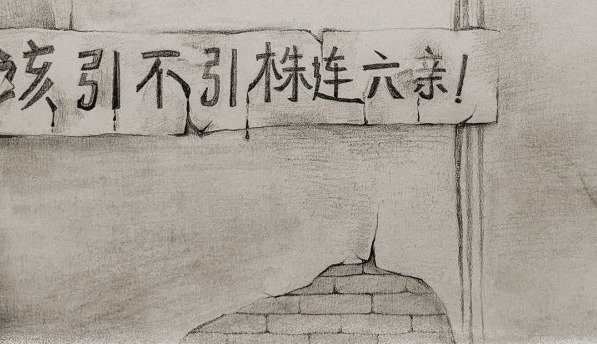 该引不引株连六亲!